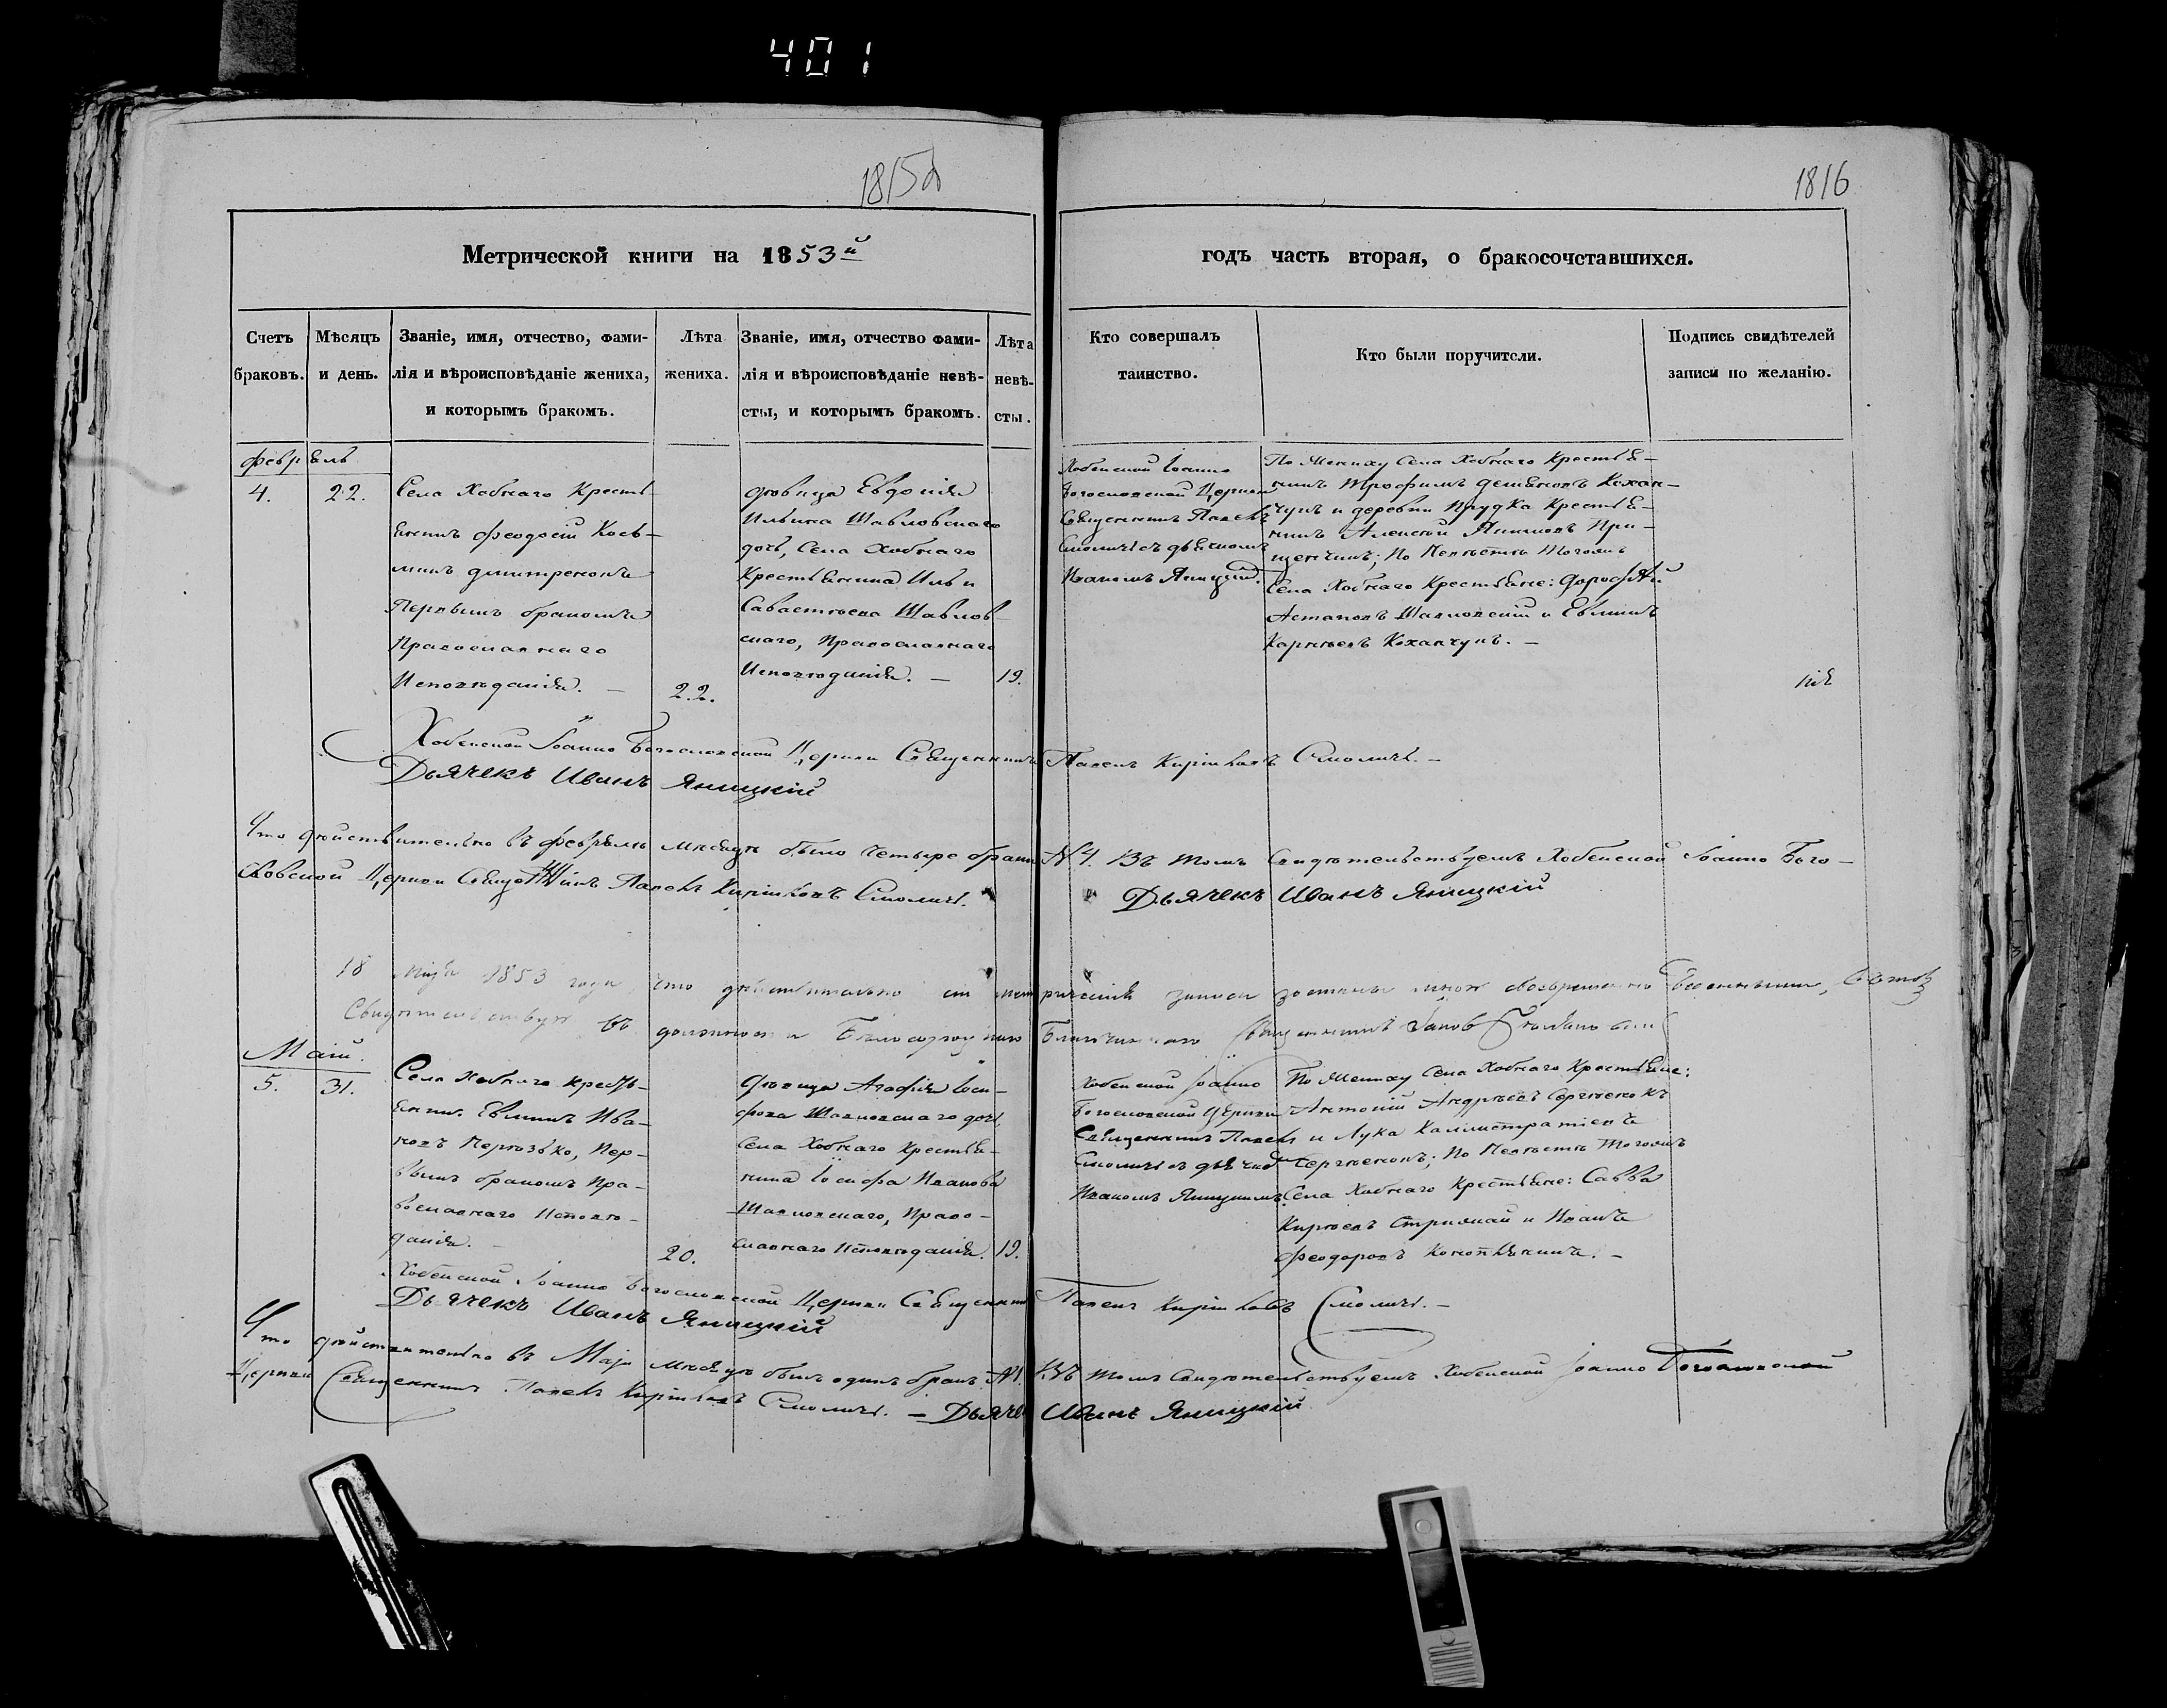 401
1815
1816
Метрической книги на 1853й
годъ часть вторая, о бракосочетавшихся.
Счетъ
браковъ.
Мѣсяцъ
и день.
Званіе, имя, отчество, фами-
лія и вѣроисповѣданіе жениха,
и которымъ бракомъ.
Лѣта
жениха.
Званіе, имя, отчество фами-
лія и вѣроисповѣданіе невѣ-
сты, и которымъ бракомъ.
Лѣта
невѣ-
сты.
Кто совершалъ
таинство.
Кто были поручители.
Подпись свидѣтелей
записи по желанію.
февраль
4.
22.
Села Хабнаго Кресть-
янинъ феодосій Кось-
минъ Дмитренокъ
Первымъ бракомъ
Православнаго
Исповѣданія. —
22.
дѣвица Евдокія
Ильина Шавловскаго
дочь, Села Хабнаго
Крестьянина Ильи
Савастѣева Шавлов-
скаго, Православнаго
Исповѣданія. —
19.
Хабенской Іоанно
Богословской Церкви
Священникъ Павелъ
Смоличъ съ дьячкомъ
Иваномъ Яницкій.
По Жениху Села Хабнаго Крестья-
нинъ Трофимъ Демьяновъ Кохан-
чукъ и деревни Прудка Крестья-
нинъ Алексѣй Якимовъ При-
щенчикъ; По Невѣстѣ Тогожъ
Села Хабнаго Крестьяне: Дорофѣй
Астаповъ Шавловскій и Евлимъ
Карнѣевъ Коханчукъ. —
Хабенской Іоанно Богословской Церкви Священникъ Павелъ Киріиловъ Смоличъ. —
Дьячекъ Иванъ Яницкій
Что дѣйствительно въ февралѣ мѣсяцѣ было четыре брака №4. Въ томъ Свидѣтельствуемъ Хабенской Іоанно Бого-
словской Церкви Священникъ Павелъ Киріиловъ Смоличъ.
Дьячекъ Иванъ Яницкій
18 1853 года, что дѣйствительно метрическія записи
Свидѣтельствую въ должности Благочиннаго Священникъ
Маій.
5.
31.
Села Хабнаго Кресть-
янинъ Евлимъ Ива-
новъ Перевозько, Пер-
вымъ бракомъ Пра-
вославнаго Исповѣ-
данія. —
20.
Дѣвица Агафія Іоси-
фова Шавловскаго дочь,
Села Хабнаго Крестья-
нина Іосифа Иванова
Шавловскаго, Право-
славнаго Исповѣданія.
19.
Хабенской Іоанно
Богословской Церкви
Священникъ Павелъ
Смоличъ съ дьячкомъ
Иваномъ Яницкимъ
По Жениху Села Хабнаго Крестьяне:
Антоній Андрѣевъ Сергѣенокъ
и Лука Каллистратіевъ
Сергѣенокъ; По Невѣстѣ Тогожъ
Села Хабнаго Крестьяне: Савва
Кирѣевъ и Иванъ
феодоровъ
Хабенской Іоанно Богословской Церкви Священникъ Павелъ Киріиловъ Смоличъ. —
Дьячекъ Иванъ Яницкій
Что дѣйствительно въ Маѣ мѣсяцѣ былъ одинъ бракъ №1. Въ томъ Свидѣтельствуемъ Хабенской Іоанно Богословской
Церкви Священникъ Павелъ Киріиловъ Смоличъ. — Дьячекъ Иванъ Яницкій